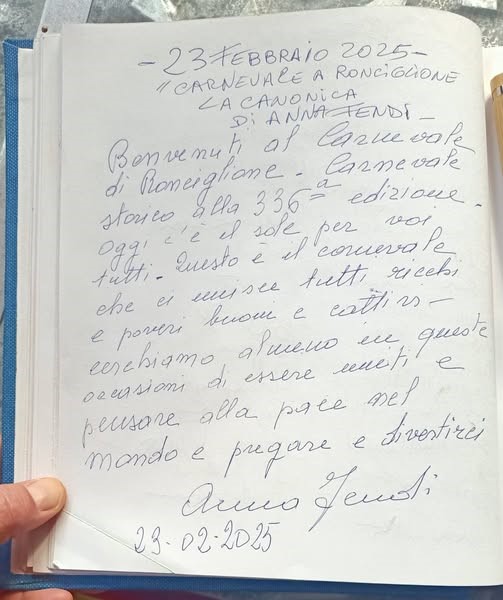 - 23 FEBBRAIO 2025 -
"CARNEVALE A RONCIGLIONE
LA CANONICA
DI ANNA FENDI -
Benvenuti al Carnevale
di Ronciglione. Carnevale
storico alla 336ª edizione.
oggi c'è il sole per voi
tutti - Questo è il carnevale
che ci unisce tutti ricchi
e poveri buoni e cattivi -
cerchiamo almeno in queste
occasioni di essere uniti e
pensare alla pace nel
mondo e pregare e divertirci
Anna Fendi
23-02-2025